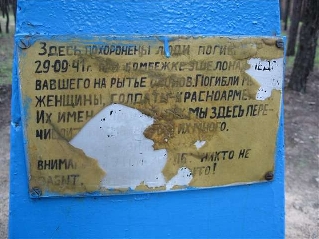 Здесь похоронены люди погиб
29-09-41г. при бомбежке эшелона
вавшего на рытье окопов. Погибли
женщины, солдаты-красноарме
Их имен мы здесь пере-
чи много.
Вниман никто не
забыт, то!